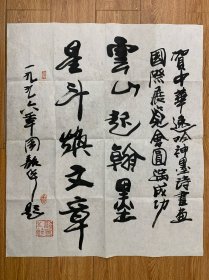 賀中華逸吟神墨詩書畫
國際展覽會圓滿成功
雲山起翰墨
星斗煥文章
一九九六年